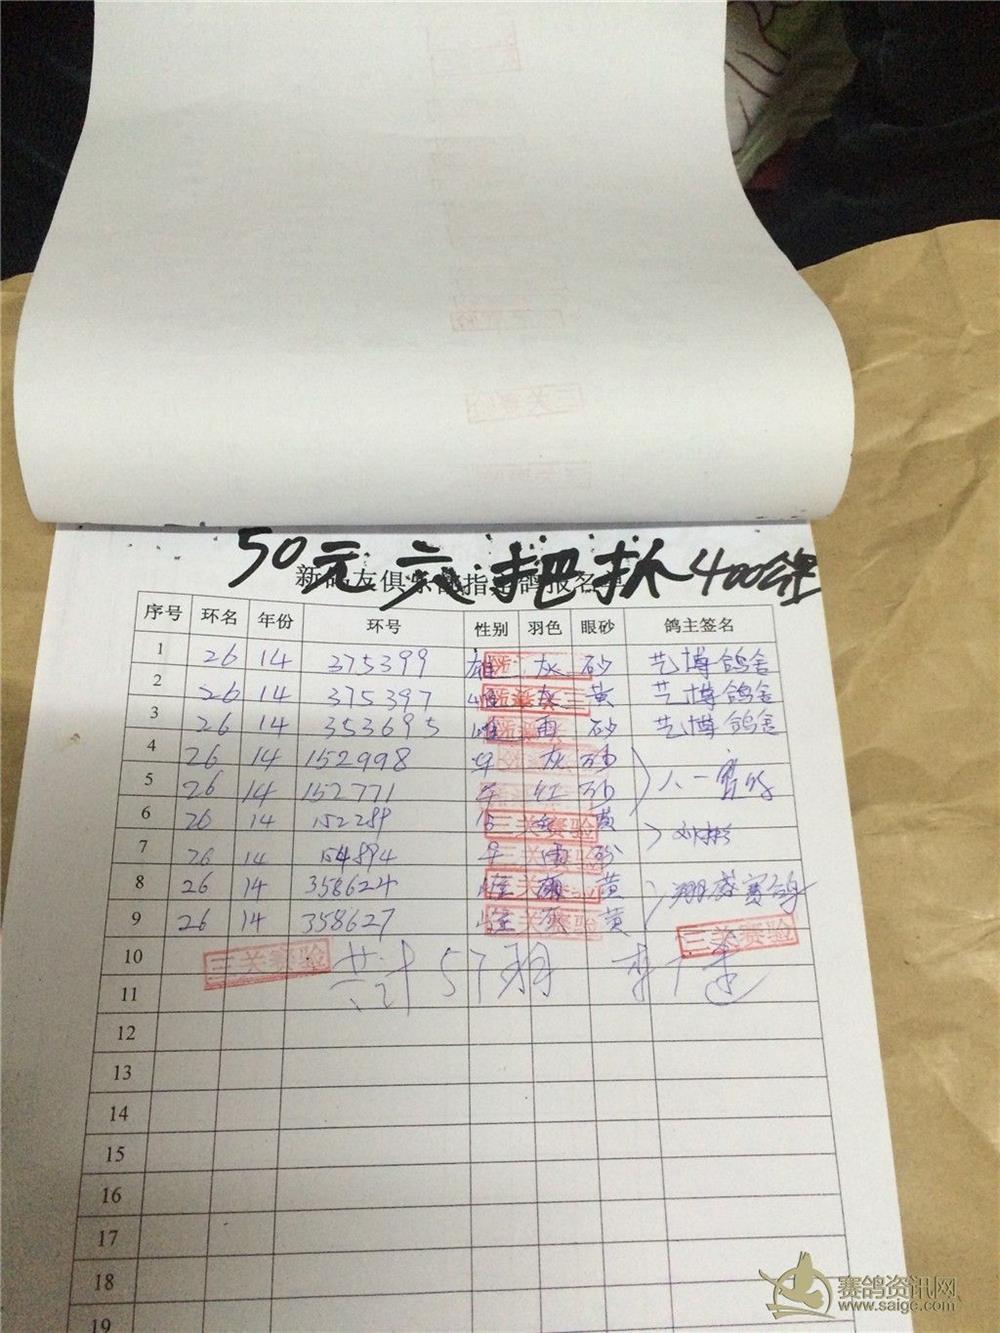 三关赛验
三关赛验
50元六把抓400公里
新鸽友俱乐部指定鸽报名单
序号 环名 年份 环号 性别 羽色 眼砂 鸽主签名
1 26 14 375399 雄 灰 砂 艺博鸽舍
2 26 14 375397 雌 灰 黄 艺博鸽舍
3 26 14 353695 雌 雨 砂 艺博鸽舍
4 26 14 152998 灰 砂
5 26 14 152771 红 砂 八一赛鸽
6 26 14 152289 黄
7 26 14 154894 雨 砂 刘彬
8 26 14 358624 雄 黄 翔蓉赛鸽
9 26 14 358627 雄 灰 黄
10 三关赛验 共计57羽 三关赛验
11
12
13
14
15
16
17
18
19
赛鸽资讯网
www.saige.com